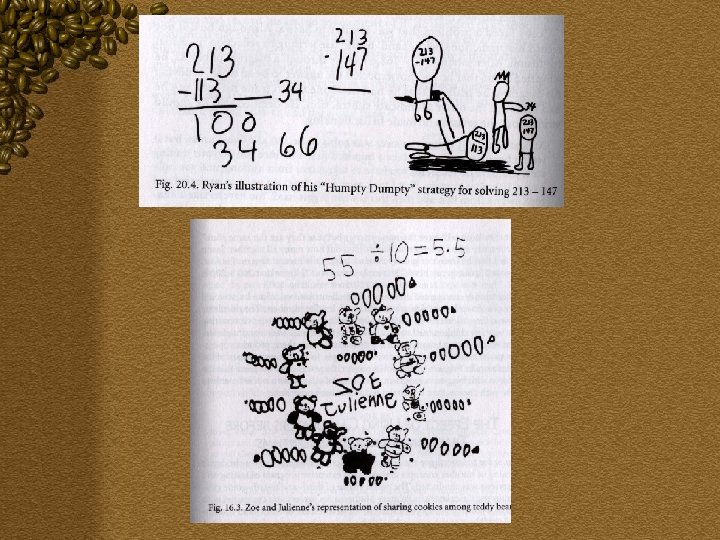 213
-113 34
100
34 66
213
-147
213
-147
213
113
34
213
147
Fig. 20.4. Ryan's illustration of his "Humpty Dumpty" strategy for solving 213 – 147
55 ÷10=5.5
ZOE
Julienne
Fig. 16.3. Zoe and Julienne's representation of sharing cookies among teddy bea